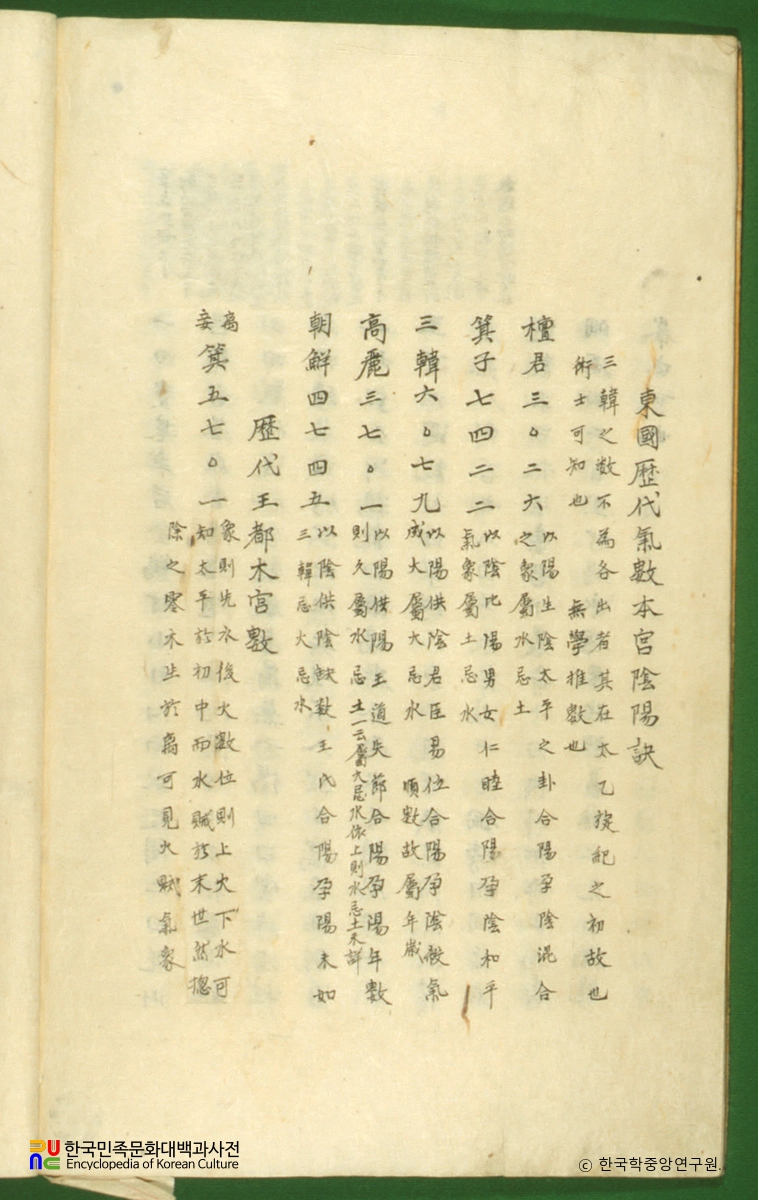 東國歷代氣數本宮陰陽訣
三韓之數不為各出者其在太乙旋紀之初故也
術士可知也 無學推數也
檀君三〇二六 以陽生陰太平之卦合陽孕陰混合
之象屬水忌土
箕子七四二二 以陰比陽男女仁睦合陽孕陰和平
氣象屬土忌水
三韓六〇七九 以陽供陰君臣易位合陽孕陰殺氣
成大屬大忌水 順數故屬年歲
高麗三七〇一 以陽供陽王道失節合陽孕陽年數
則久屬水忌土一云屬火忌水依上則水忌土未詳
朝鮮四七四五 以陰供陰缺數王氏合陽孕陽未如
三韓忌火忌水
歷代王都木宮數
高
妾 箕五七〇一 象則先水後火數位則上火下水可
知太平於初中而水賊於末世然摠
除之寥木生於离可見火賊氣象
한국민족문화대백과사전
Encyclopedia of Korean Culture
© 한국학중앙연구원